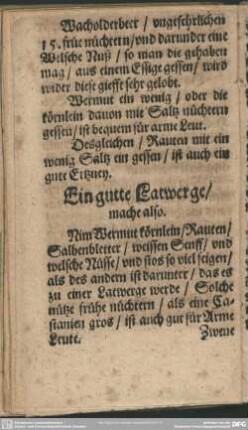 Wacholderbeer / vngefehrlichen
15. früe nüchtern / vnd darunder eine
Welsche Nuß / so man die gehaben
mag / aus einem Essige gessen / wird
wider diese giefft sehr gelobt.
Wermut ein wenig / oder die
körnlein dauon mit Saltz nüchtern
gessen / ist bequem für arme Leut.
Desgleichen / Rauten mit ein
wenig Saltz ein gessen / ist auch ein
gute Ertzney.
Ein gutte Latwerge /
mache also.
Nim Wermut körnlein / Rauten /
Salbenbletter / weissen Senff / vnd
welsche Nüsse / vnd stos so viel feigen /
als des andern ist darunter / das es
zu einer Latwerge werde / Solche
nütze frühe nüchtern / als eine Ca-
stanien gros / ist auch gut für Arme
Leute.
Zwene